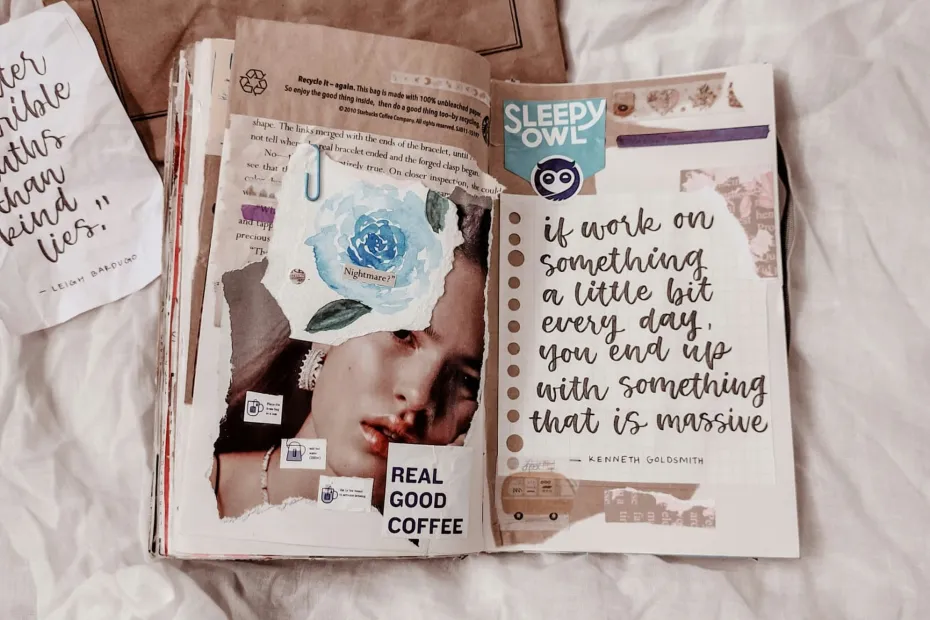 than
kind
lies."
– LEIGH BARDUGO
Recycle it – again. This bag is made with 100% unbleached paper.
So enjoy the good thing inside, then do a good thing too–by recycling.
© 2010 Starbucks Coffee Company. All rights reserved.
shape. The links merged with the ends of the bracelet, until
not tell where real bracelet ended and the forged clasp began.
see that entirely true. On closer inspection, she could
and tapp
precious
"Th
Nightmare?"
REAL
GOOD
COFFEE
SLEEPY
OWL
if work on
something
a little bit
every day,
you end up
with something
that is massive
– KENNETH GOLDSMITH